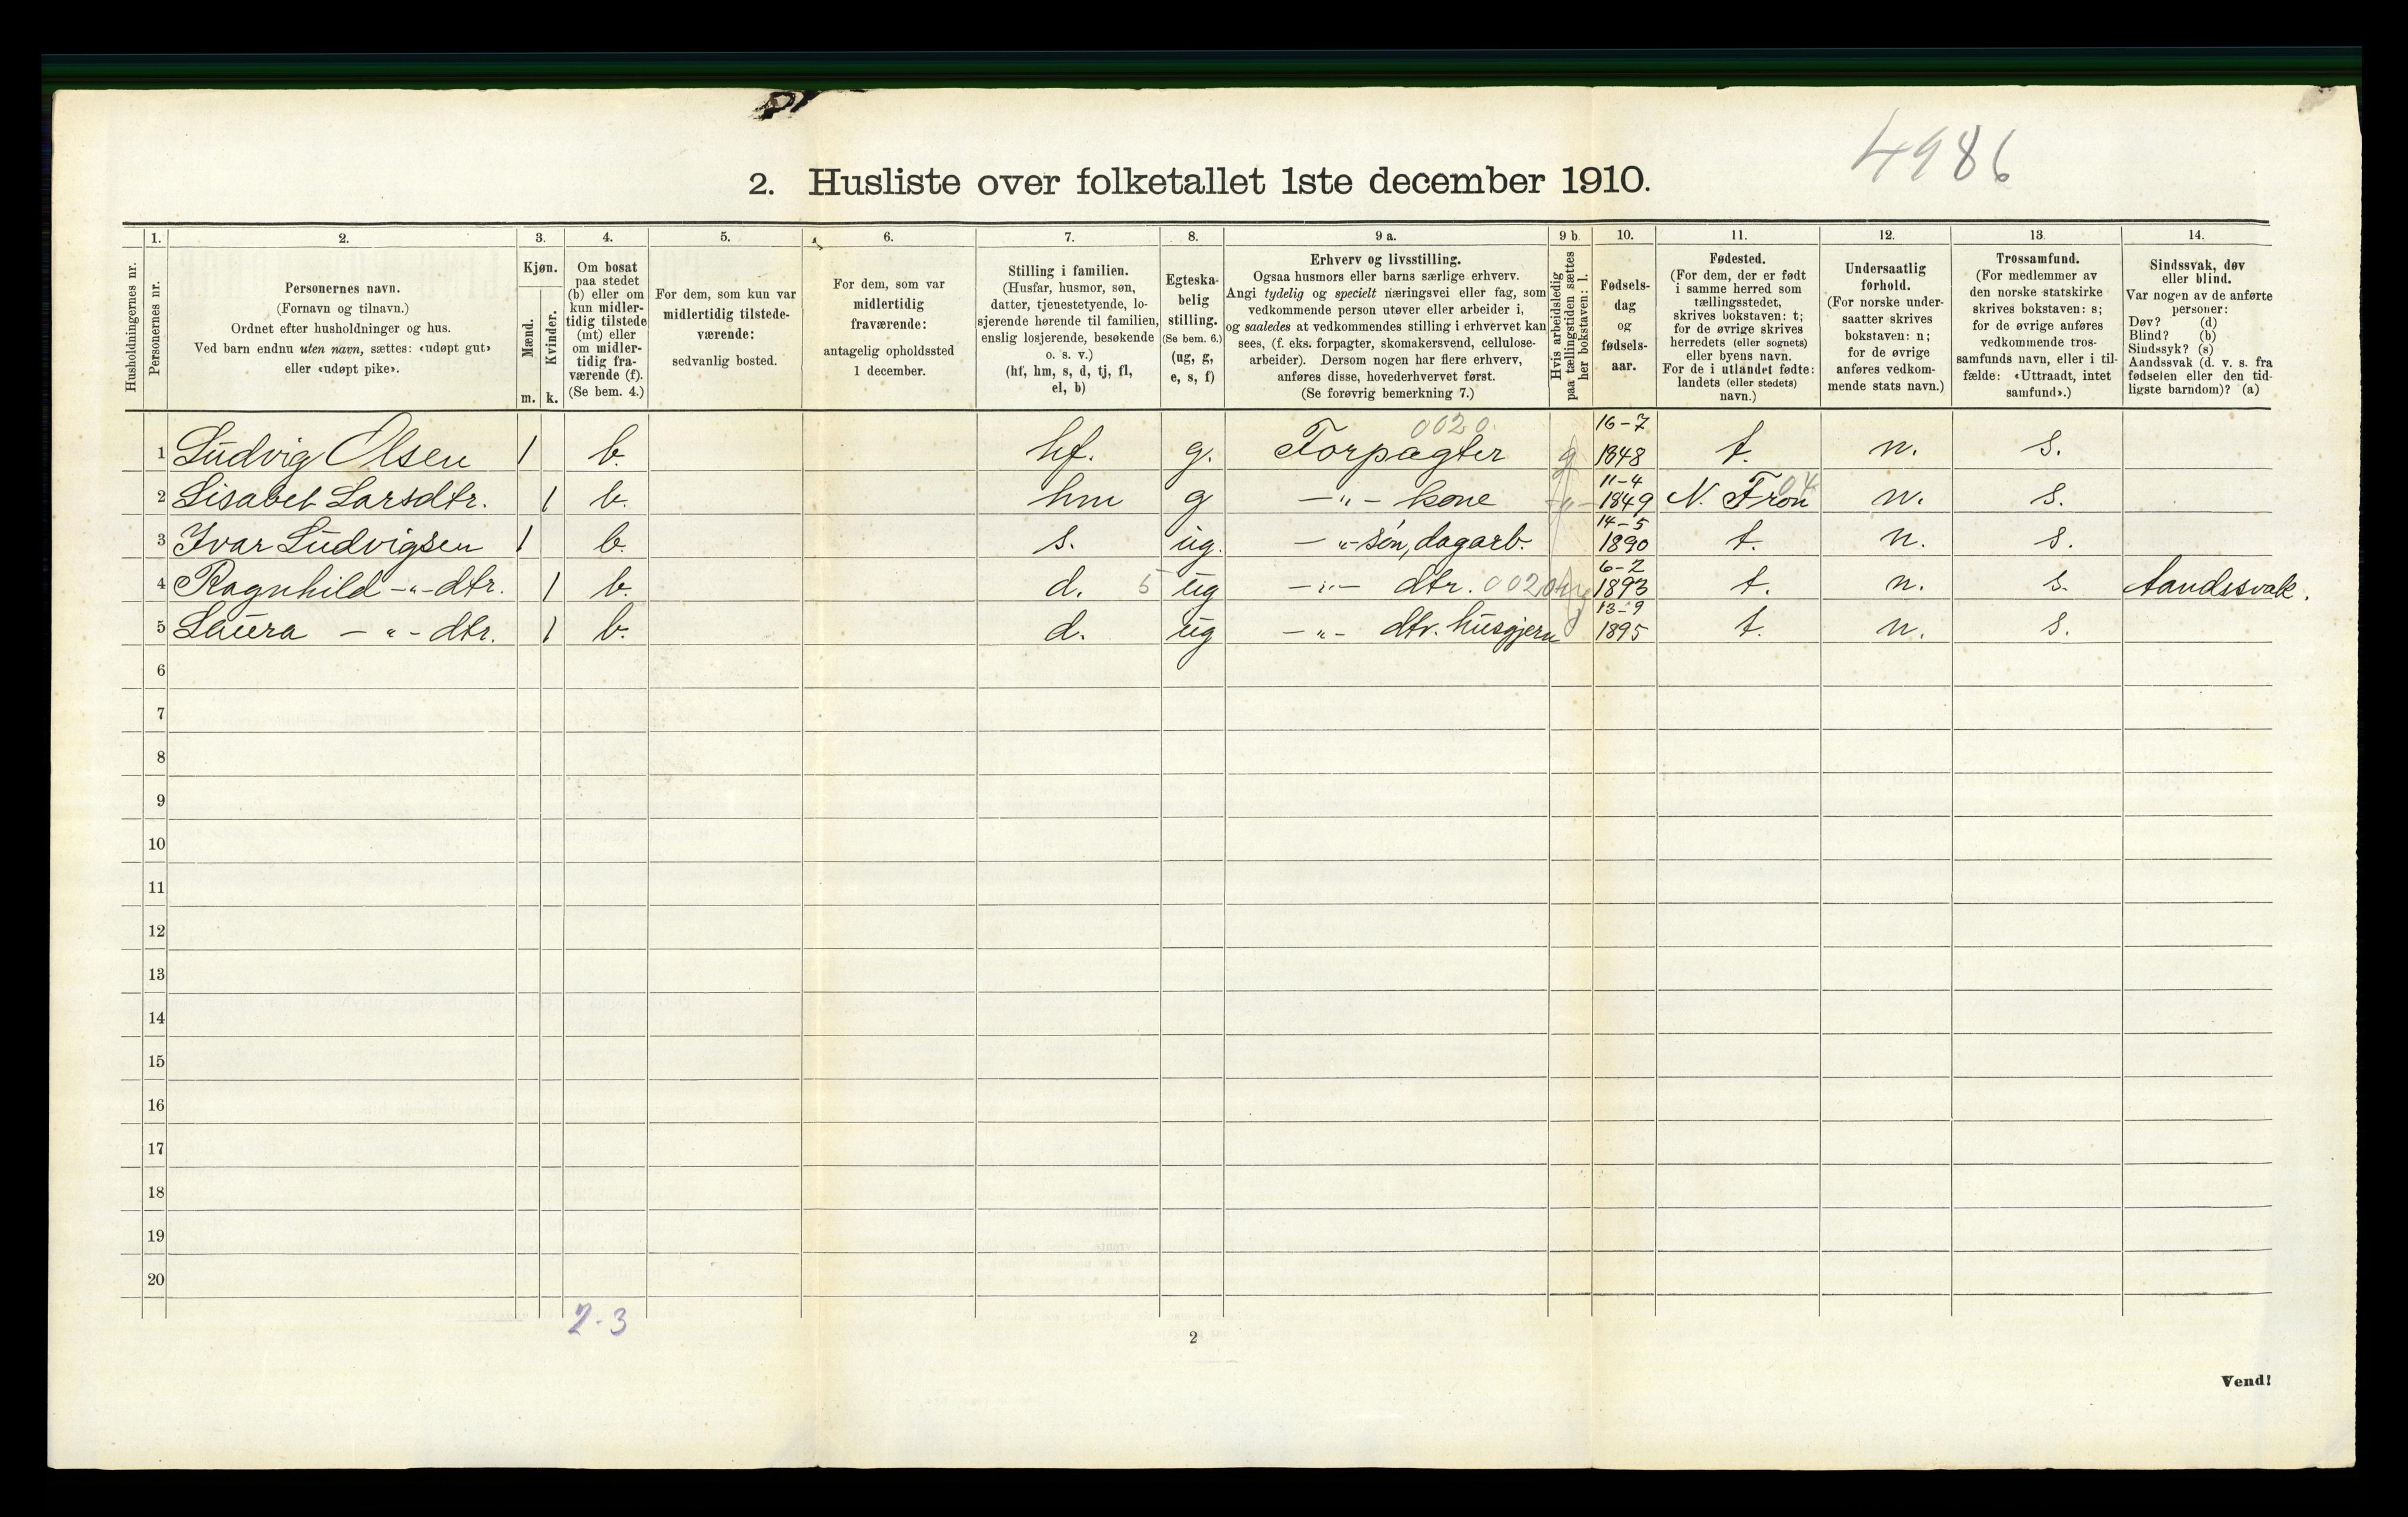 4986
2. Husliste over folketallet 1ste december 1910.
Husholdningernes nr.
1.
Personernes nr.
2.
Personernes navn.
(Fornavn og tilnavn.)
Ordnet efter husholdninger og hus.
Ved barn endnu uten navn, sættes: «udøpt gut»
eller «udøpt pike».
3.
Kjøn.
Mænd.
Kvinder.
m. k.
4.
Om bosat
paa stedet
(b) eller om
kun midler-
tidig tilstede
(mt) eller
om midler-
tidig fra-
værende (f).
(Se bem. 4.)
5.
For dem, som kun var
midlertidig tilstede-
værende:
sedvanlig bosted.
6.
For dem, som var
midlertidig
fraværende:
antagelig opholdssted
1 december.
7.
Stilling i familien.
(Husfar, husmor, søn,
datter, tjenestetyende, lo-
sjerende hørende til familien,
enslig losjerende, besøkende
o. s. v.)
(hf, hm, s, d, tj, fl,
el, b)
8.
Egteska-
belig
stilling.
(Se bem. 6.)
(ug, g,
e, s, f)
9 a.
Erhverv og livsstilling.
Ogsaa husmors eller barns særlige erhverv.
Angi tydelig og specielt næringsvei eller fag, som
vedkommende person utøver eller arbeider i,
og saaledes at vedkommendes stilling i erhvervet kan
sees, (f. eks. forpagter, skomakersvend, cellulose-
arbeider). Dersom nogen har flere erhverv,
anføres disse, hovederhvervet først.
(Se forøvrig bemerkning 7.)
9 b
Hvis arbeidsledig
paa tællingstiden sættes
her bokstaven: l.
10.
Fødsels-
dag
og
fødsels-
aar.
11.
Fødested.
(For dem, der er født
i samme herred som
tællingsstedet,
skrives bokstaven: t;
for de øvrige skrives
herredets (eller sognets)
eller byens navn.
For de i utlandet fødte:
landets (eller stedets)
navn.)
12.
Undersaatlig
forhold.
(For norske under-
saatter skrives
bokstaven: n;
for de øvrige
anføres vedkom-
mende stats navn.)
13.
Trossamfund.
(For medlemmer av
den norske statskirke
skrives bokstaven: s;
for de øvrige anføres
vedkommende tros-
samfunds navn, eller i til-
fælde: «Uttraadt, intet
samfund».)
14.
Sindssvak, døv
eller blind.
Var nogen av de anførte
personer:
Døv? (d)
Blind? (b)
Sindssyk? (s)
Aandssvak (d. v. s. fra
fødselen eller den tid-
ligste barndom)? (a)
0020. 16-7
1 Ludvig Olsen 1 b. hf. g. Forpagter g 1848 t. n. s.
11-4 04
2 Lisabet Larsdtr. 1 b. hm g -"- kone 1849 N. Fron n. s.
14-5
3 Ivar Ludvigsen 1 b. s. ug. -"- søn, dagarb. 1890 t. n. s.
6-2
4 Ragnhild -"- dtr. 1 b. d. 5 ug -"- dtr. 0020 1893 t. n. s. Aandssvak.
13-9
5 Laura -"- dtr. 1 b. d. ug -"- dtr. husgjern 1895 t. n. s.
6
7
8
9
10
11
12
13
14
15
16
17
18
19
20
2-3
2
Vend!